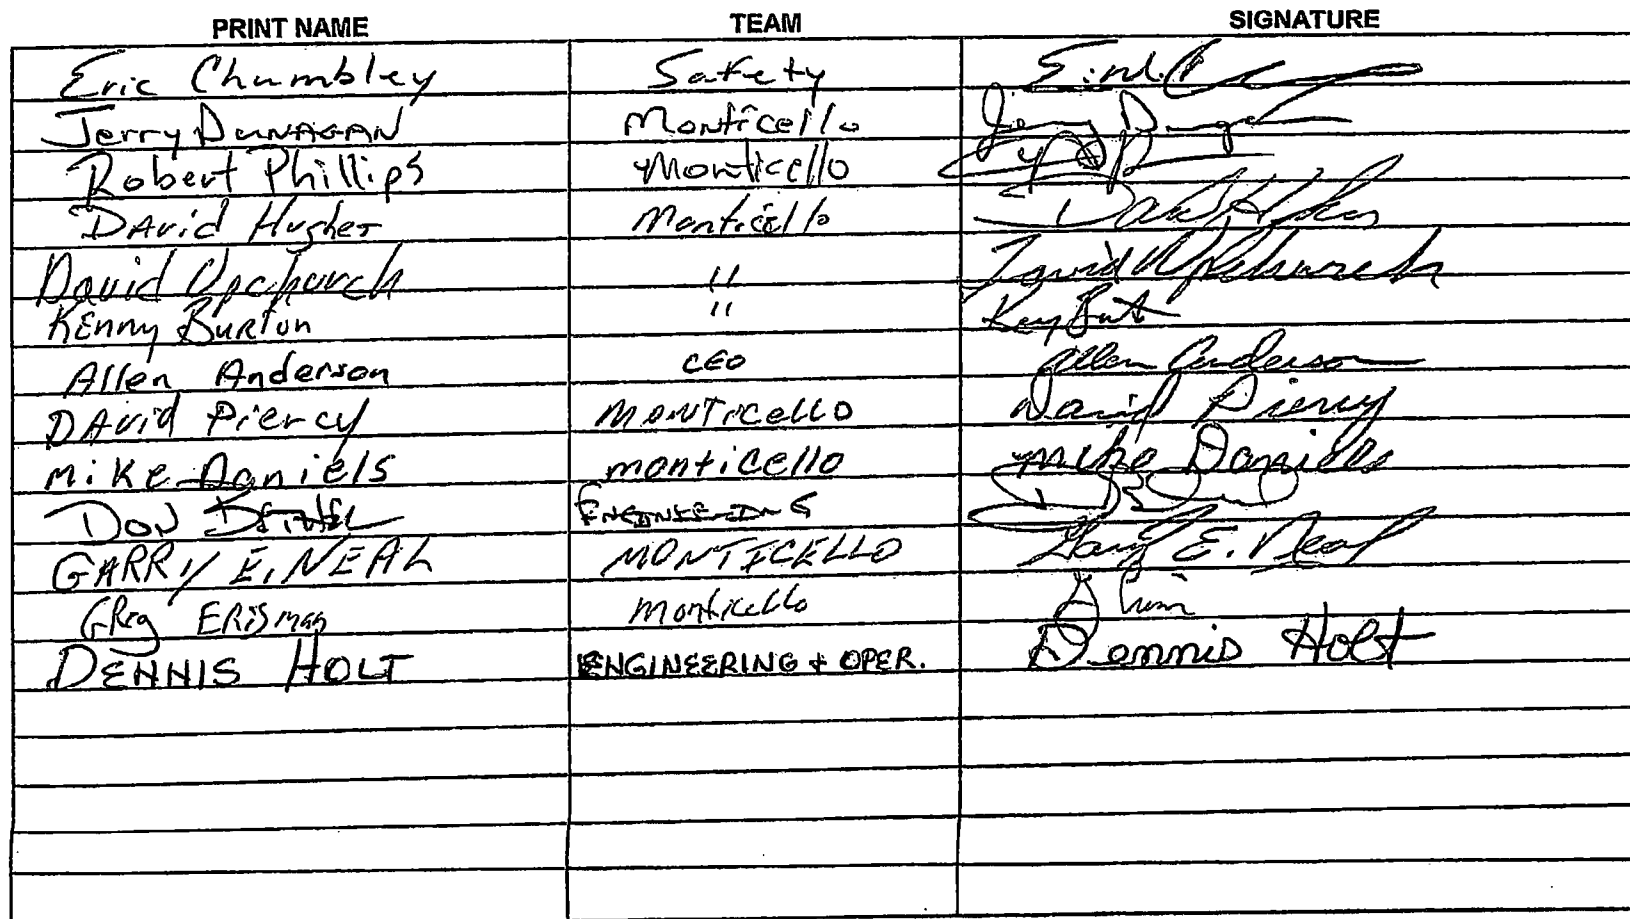 PRINT NAME TEAM SIGNATURE
Eric Chumbley Safety
Jerry DUNAGAN Monticello
Robert Phillips Monticello
DAvid Hughes Monticello David Hughes
David Upchurch " David Upchurch
KEnny BuRTon "
Allen Anderson CEO Allen Anderson
DAvid Piercy MONTicello David Piercy
MiKe Daniels monticello Mike Daniels
DON ENGINEERING
GARRY E. NEAL MONTICELLO Garry E. Neal
GReg ERiSman Monticello
DENNIS HOLT ENGINEERING + OPER. Dennis Holt